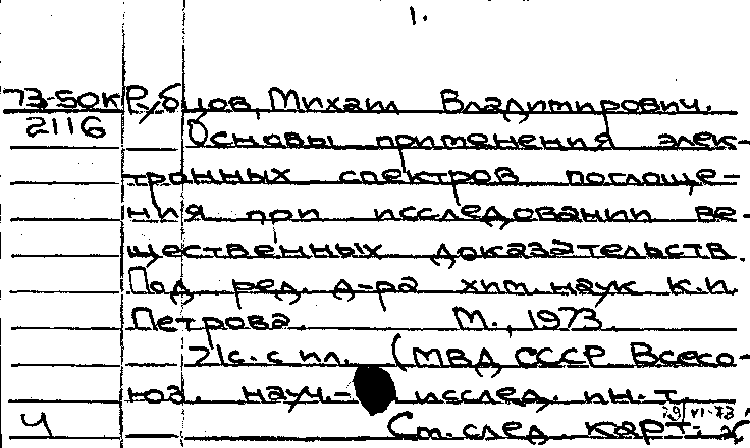 1.
73-50к Рубцов, Михаил Владимирович.
2116 Основы применения элек-
тронных спектров поглоще-
ния при исследовании ве-
щественных доказательств.
Под ред. д-ра хим. наук К.П.
Петрова. М., 1973.
71с. с ил. (МВД СССР. Всесо-
юз. науч.- исслед. ин-т
29/VI-73
Ч См. след. карт.